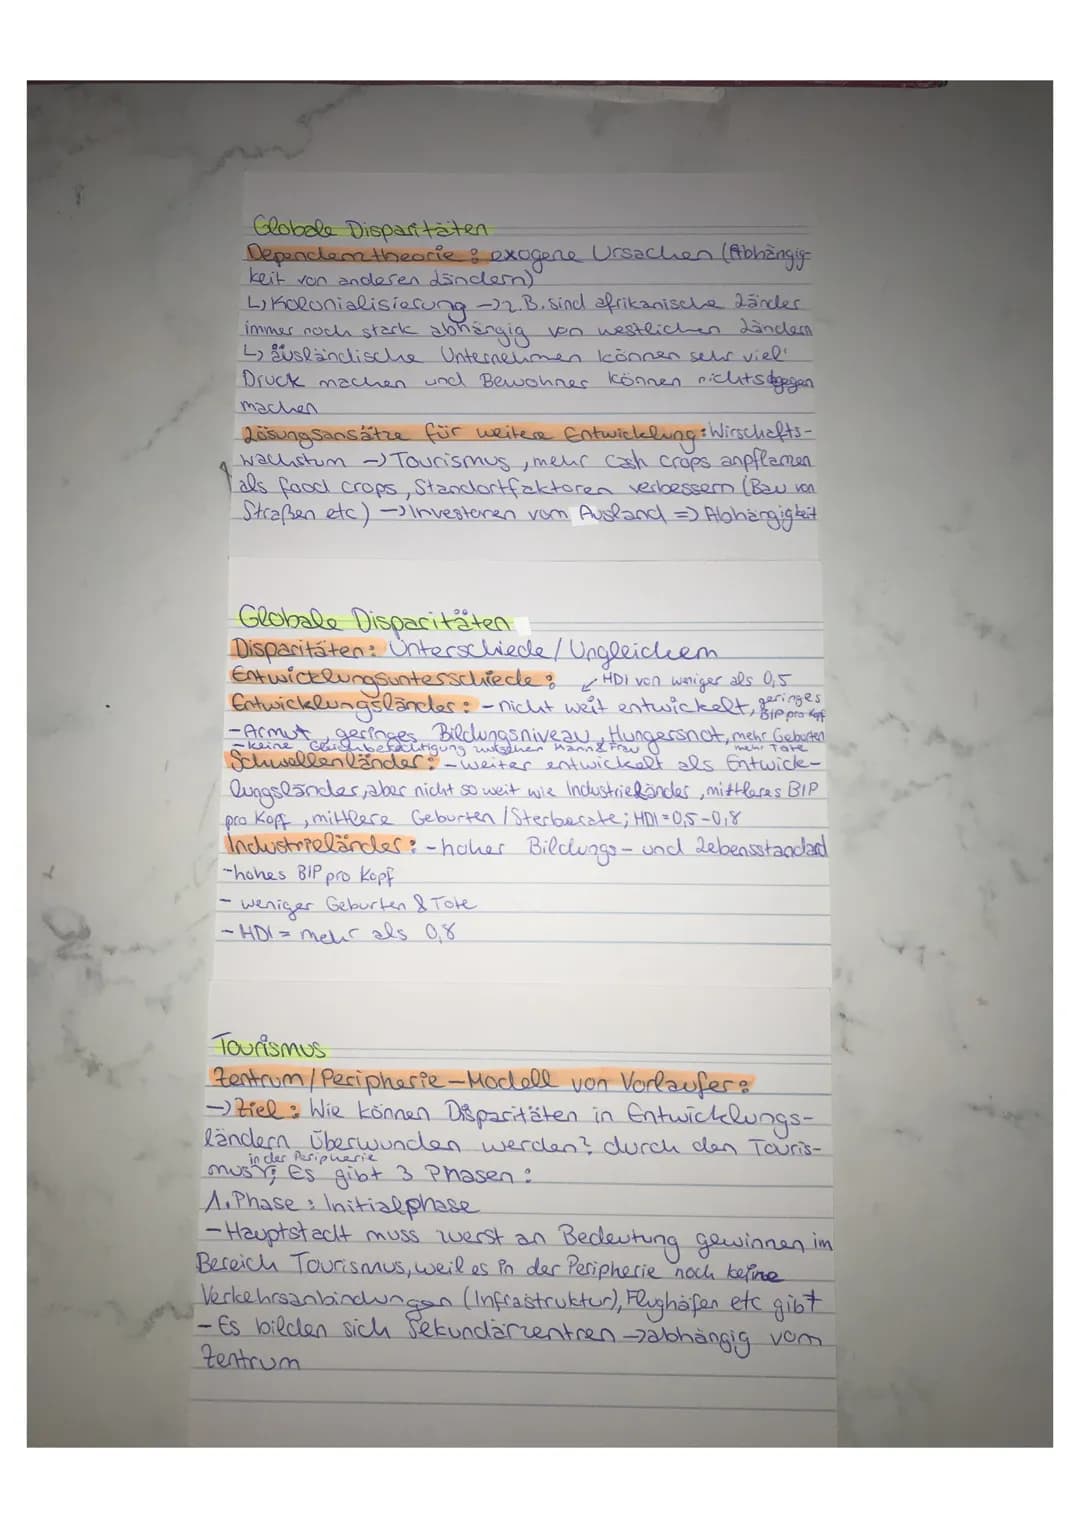 Globale Disparitäten
Dependenztheorie: exogene Ursachen (Abhängig-
keit von anderen Ländern)
↳ Kolonialisierung → z.B. sind afrikanische Länder
immer noch stark abhängig von westlichen Ländern
↳ ausländische Unternehmen können sehr viel
Druck machen und Bewohner können nichts dagegen
machen
Lösungsansätze für weitere Entwicklung: Wirschafts-
wachstum → Tourismus, mehr cash crops anpflanzen
als food crops, Standortfaktoren verbessern (Bau von
Straßen etc) → Investoren vom Ausland => Abhängigkeit
Globale Disparitäten
Disparitäten: Unterschiede / Ungleichen
Entwicklungsunterschiede: ↙ HDI von weniger als 0,5
Entwicklungsländer: - nicht weit entwickelt, geringes BIP pro Kopf
- Armut, geringes Bildungsniveau, Hungersnot, mehr Geburten
- keine Gleichberechtigung zwischen Mann & Frau mehr Tote
Schwellenländer: - weiter entwickelt als Entwick-
lungsländer, aber nicht so weit wie Industrieländer, mittleres BIP
pro Kopf, mittlere Geburten / Sterberate; HDI = 0,5-0,8
Industrieländer: - hoher Bildungs- und Lebensstandard
- hohes BIP pro Kopf
- weniger Geburten & Tote
- HDI = mehr als 0,8
Tourismus
Zentrum/Peripherie-Modell von Vorlaufer:
→ Ziel: Wie können Disparitäten in Entwicklungs-
ländern überwunden werden? durch den Touris-
in der Peripherie
mus; Es gibt 3 Phasen:
1. Phase: Initialphase
- Hauptstadt muss zuerst an Bedeutung gewinnen im
Bereich Tourismus, weil es in der Peripherie noch keine
Verkehrsanbindungen (Infrastruktur), Flughäfen etc gibt
- Es bilden sich Sekundärzentren → abhängig vom
Zentrum